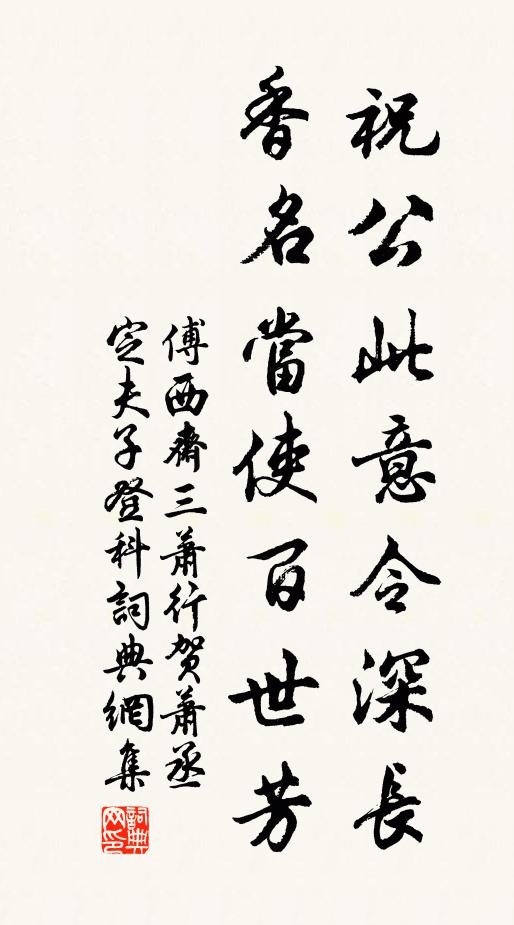 祝公此意令深長
香名當使百世芳
傅西齋三蕭行賀蕭丞
定夫子登科詞典網集
詞典
网印